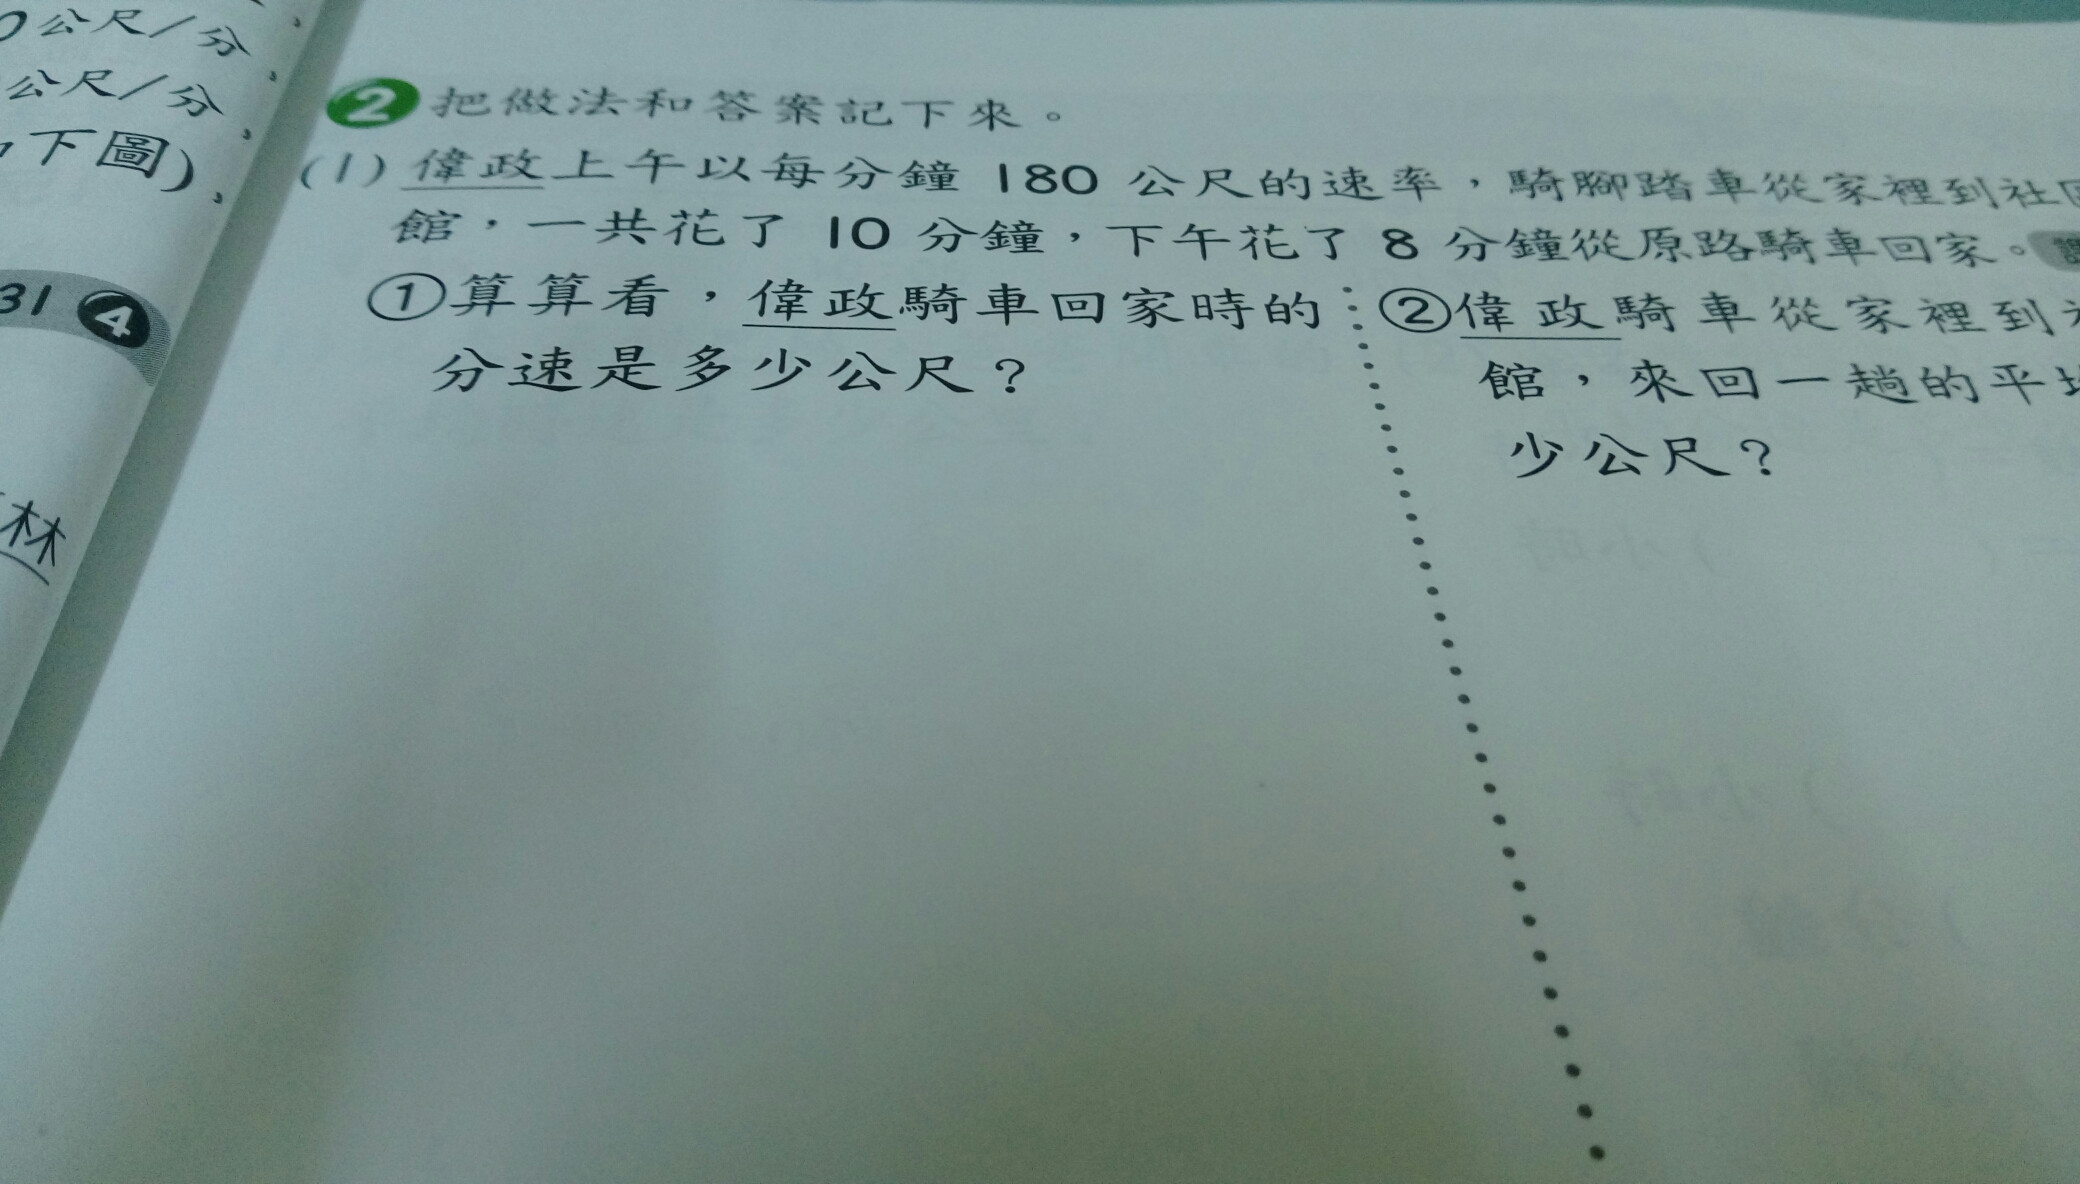 公尺/分，
公尺/分，
下圖)，
31 4
林
2 把做法和答案記下來。
(1) 偉政上午以每分鐘 180 公尺的速率，騎腳踏車從家裡到社
館，一共花了 10 分鐘，下午花了 8 分鐘從原路騎車回家。
①算算看，偉政騎車回家時的
分速是多少公尺？
②偉政騎車從家裡到
館，來回一趟的平
少公尺？